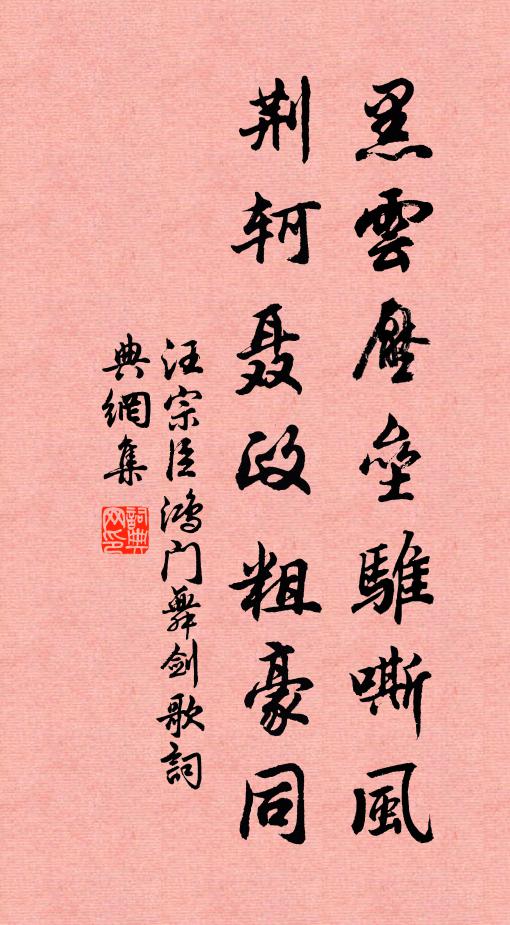 黑雲壓壘騅嘶風
荆轲聂政粗豪同
汪宗臣鴻门舞剑歌詞
典網集
詞典網印